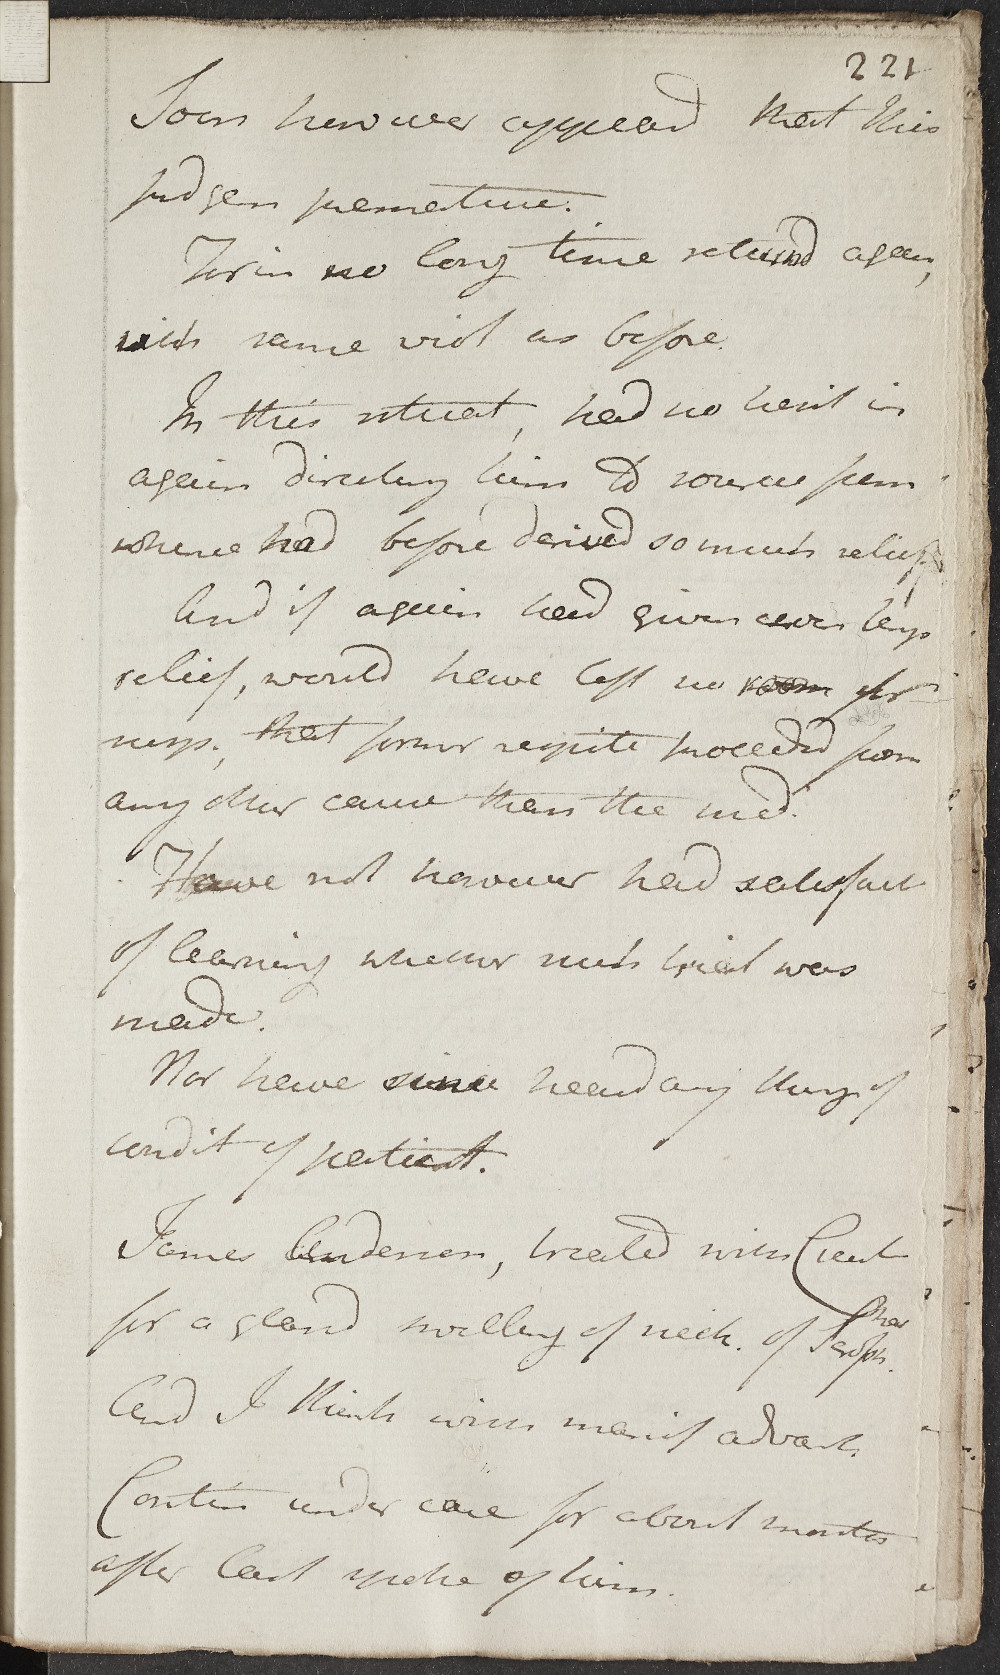 221
Soon however appeard that this
judgem premature.
For in no long time returnd again,
with same viol as before.
In this situat, had no hesit in
again directing him to source from
whence had before derived so much relief
And if again had given even less
relief, would have left no room for
susp, that former respite proceeded from
any other cause than the med.
Have not however had satisfact
of learning whether such trial was
made.
Nor have since heard any thing of
condit of patient.
James Anderson, treated with Cicut
for a gland swelling of neck. of Scroph. char
And I think with manif advant.
Contin under care for about months
after last spoke of him.